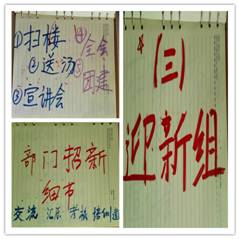 ①扫楼
②送汤
③宣讲会
④全会
团建
(三)
迎新组
部门招新
细节
交流 汇总 考核 培训